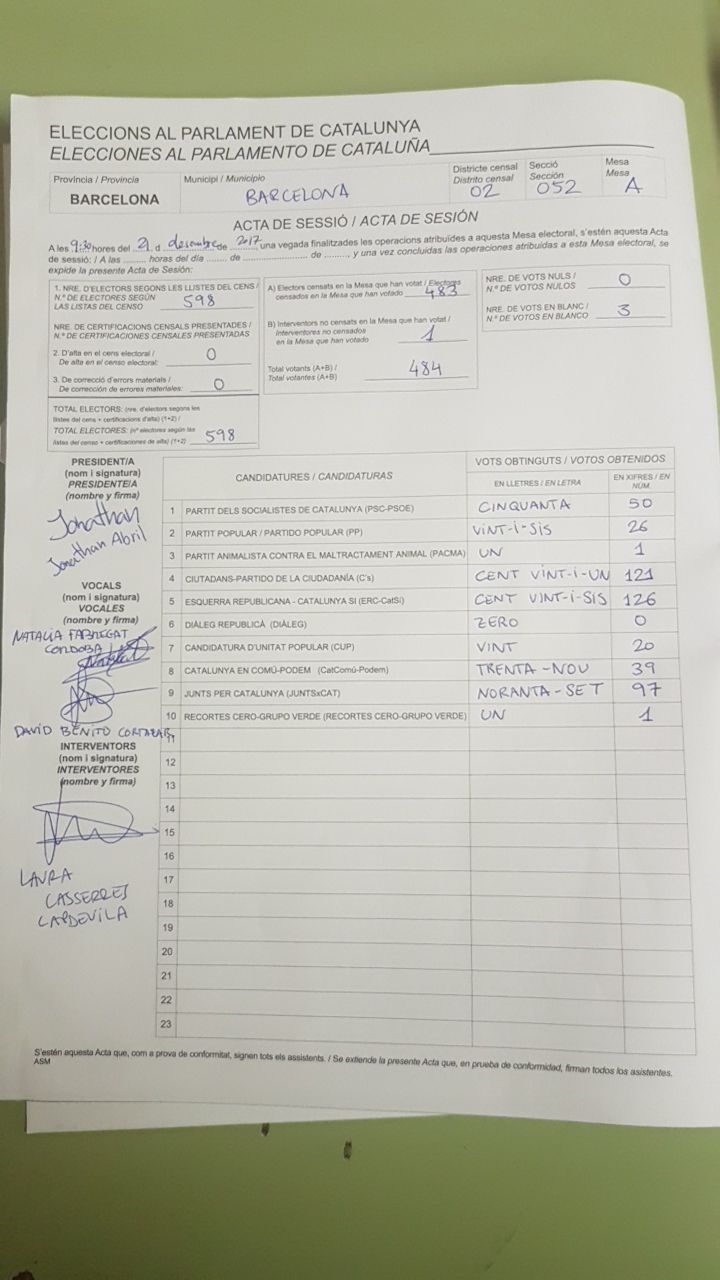 ELECCIONS AL PARLAMENT DE CATALUNYA
ELECCIONES AL PARLAMENTO DE CATALUÑA
Província / Provincia
BARCELONA
Municipi / Municipio
BARCELONA
Districte censal
Distrito censal
02
Secció
Sección
052
Mesa
Mesa
A
ACTA DE SESSIÓ / ACTA DE SESIÓN
A les 9:30 hores del 21 d desembre de 2017 una vegada finalitzades les operacions atribuïdes a aquesta Mesa electoral, s'estén aquesta Acta
de sessió: / A las ........ horas del día ....... de ...................... de ........, y una vez concluidas las operaciones atribuidas a esta Mesa electoral, se
expide la presente Acta de Sesión:
1. NRE. D'ELECTORS SEGONS LES LLISTES DEL CENS /
N.º DE ELECTORES SEGÚN
LAS LISTAS DEL CENSO 598
NRE. DE CERTIFICACIONS CENSALS PRESENTADES /
N.º DE CERTIFICACIONES CENSALES PRESENTADAS
2. D'alta en el cens electoral /
De alta en el censo electoral: 0
3. De correcció d'errors materials /
De corrección de errores materiales: 0
TOTAL ELECTORS: (nre. d'electors segons les
llistes del cens + certificacions d'alta) (1+2) /
TOTAL ELECTORES: (nº electores según las
listas del censo + certificaciones de alta) (1+2) 598
A) Electors censats en la Mesa que han votat / Electores
censados en la Mesa que han votado 483
B) Interventors no censats en la Mesa que han votat /
Interventores no censados
en la Mesa que han votado 1
Total votants (A+B) /
Total votantes (A+B) 484
NRE. DE VOTS NULS /
N.º DE VOTOS NULOS 0
NRE. DE VOTS EN BLANC /
N.º DE VOTOS EN BLANCO 3
PRESIDENT/A
(nom i signatura)
PRESIDENTE/A
(nombre y firma)
Jonathan
Jonathan Abril
VOCALS
(nom i signatura)
VOCALES
(nombre y firma)
NATALIA FABREGAT
CORDOBA
DAVID BENITO CORTAZAR
INTERVENTORS
(nom i signatura)
INTERVENTORES
(nombre y firma)
LAURA
CASSERRES
CAPDEVILA
CANDIDATURES / CANDIDATURAS
VOTS OBTINGUTS / VOTOS OBTENIDOS
EN LLETRES / EN LETRA
EN XIFRES / EN
NÚM.
1 PARTIT DELS SOCIALISTES DE CATALUNYA (PSC-PSOE) CINQUANTA 50
2 PARTIT POPULAR / PARTIDO POPULAR (PP) VINT-I-SIS 26
3 PARTIT ANIMALISTA CONTRA EL MALTRACTAMENT ANIMAL (PACMA) UN 1
4 CIUTADANS-PARTIDO DE LA CIUDADANÍA (C's) CENT VINT-I-UN 121
5 ESQUERRA REPUBLICANA - CATALUNYA SI (ERC-CatSí) CENT VINT-I-SIS 126
6 DIÀLEG REPUBLICÀ (DIÀLEG) ZERO 0
7 CANDIDATURA D'UNITAT POPULAR (CUP) VINT 20
8 CATALUNYA EN COMÚ-PODEM (CatComú-Podem) TRENTA-NOU 39
9 JUNTS PER CATALUNYA (JUNTSxCAT) NORANTA-SET 97
10 RECORTES CERO-GRUPO VERDE (RECORTES CERO-GRUPO VERDE) UN 1
11
12
13
14
15
16
17
18
19
20
21
22
23
S'estén aquesta Acta que, com a prova de conformitat, signen tots els assistents. / Se extiende la presente Acta que, en prueba de conformidad, firman todos los asistentes.
ASM